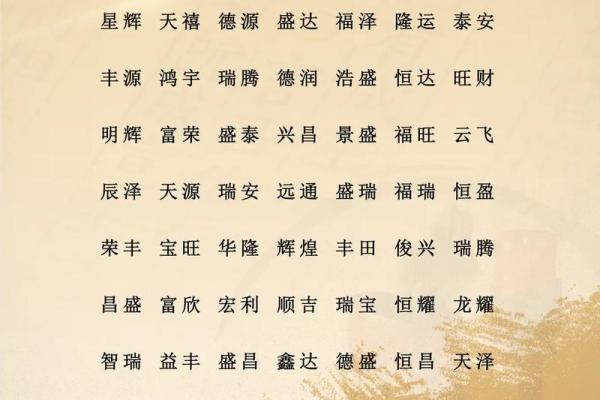 星辉 天禧 德源 盛达 福泽 隆运 泰安
丰源 鸿宇 瑞腾 德润 浩盛 恒达 旺财
明辉 富荣 盛泰 兴昌 景盛 福旺 云飞
辰泽 天源 瑞安 远通 盛瑞 福瑞 恒盈
荣丰 宝旺 华隆 辉煌 丰田 俊兴 瑞腾
昌盛 富欣 宏利 顺吉 瑞宝 恒耀 龙耀
智瑞 益丰 盛昌 鑫达 德盛 恒昌 天泽